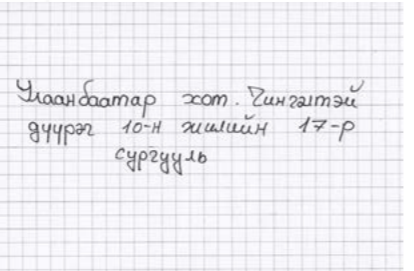 Улаанбаатар хот. Чингэлтэй
дүүрэг 10-н жилийн 17-р
сургууль